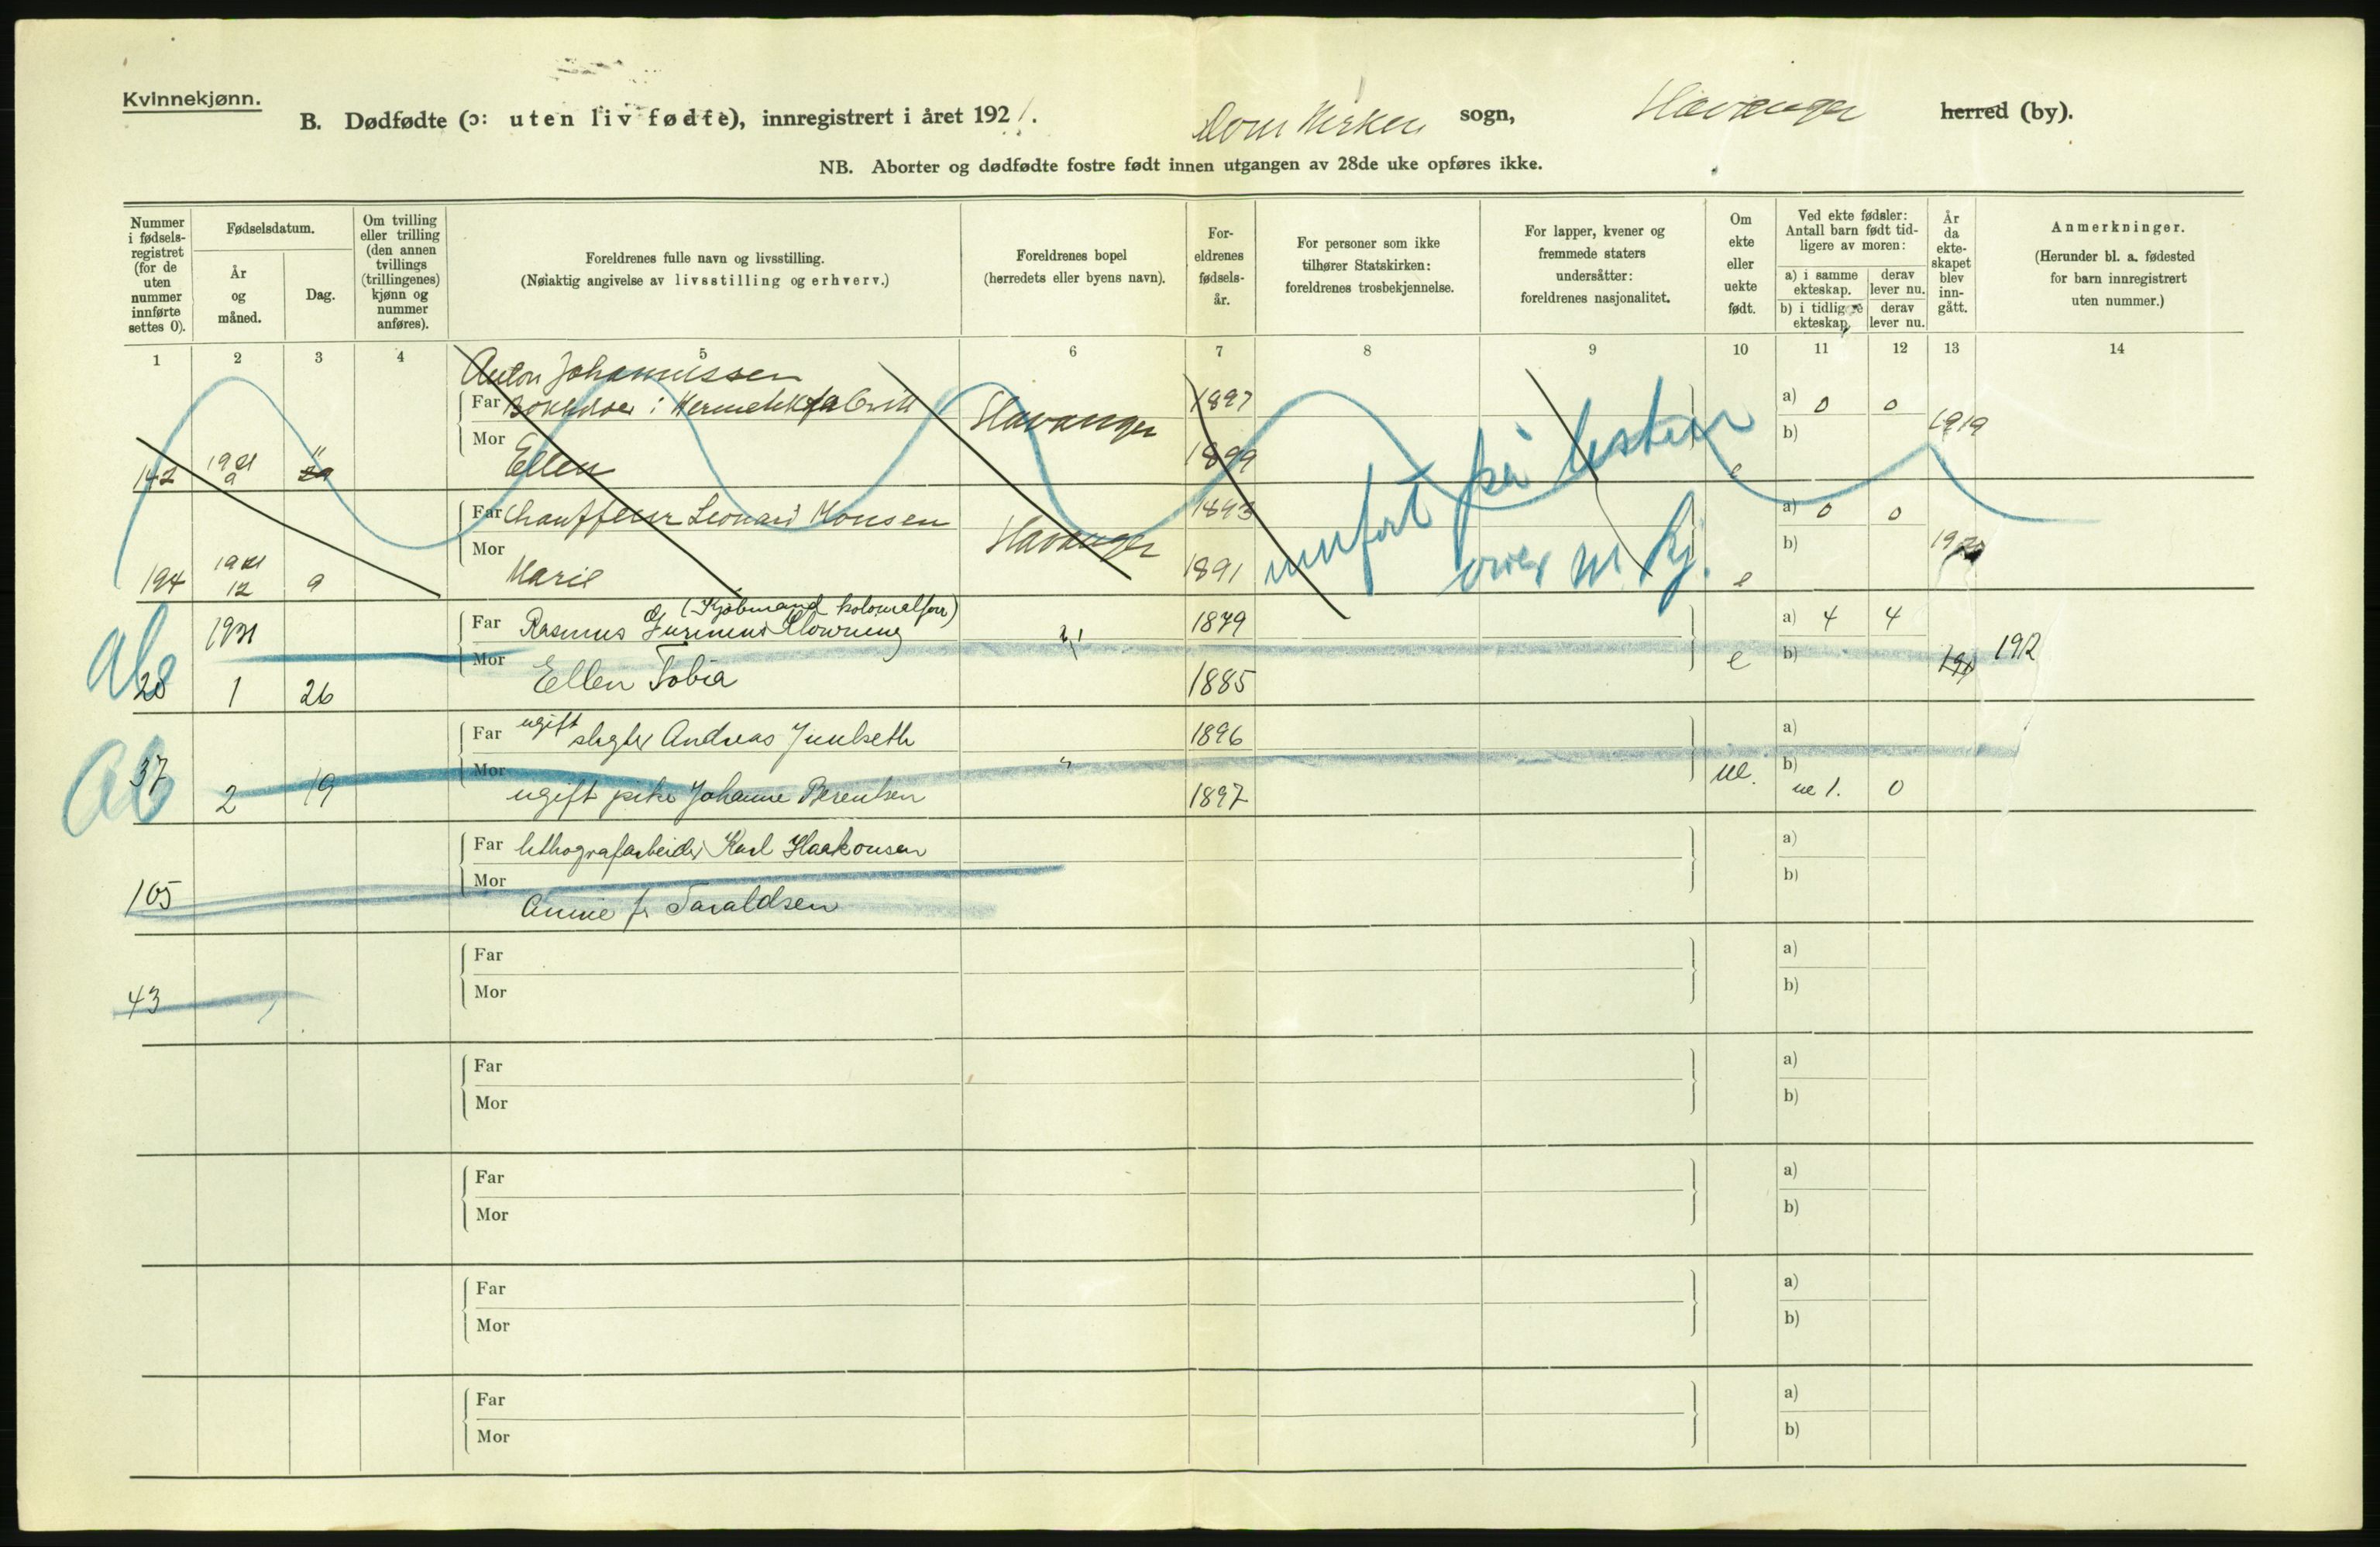 Kvinnekjønn.
B. Dødfødte (ɔ: uten liv fødte), innregistrert i året 1921. Domkirken sogn, Stavanger herred (by).
NB. Aborter og dødfødte fostre født innen utgangen av 28de uke opføres ikke.
Nummer i fødsels-registret (for de uten nummer innførte settes 0).
Fødselsdatum.
År og måned.
Dag.
Om tvilling eller trilling (den annen tvillings (trillingenes) kjønn og nummer anføres).
Foreldrenes fulle navn og livsstilling.
(Nøiaktig angivelse av livsstilling og erhverv.)
Foreldrenes bopel
(herredets eller byens navn).
For-eldrenes fødsels-år.
For personer som ikke tilhører Statskirken: foreldrenes trosbekjennelse.
For lapper, kvener og fremmede staters undersåtter: foreldrenes nasjonalitet.
Om ekte eller uekte født.
Ved ekte fødsler: Antall barn født tid-ligere av moren:
a) i samme ekteskap.
derav lever nu.
b) i tidligere ekteskap.
derav lever nu.
År da ekte-skapet blev inn-gått.
Anmerkninger.
(Herunder bl. a. fødested for barn innregistrert uten nummer.)
1 2 3 4 5 6 7 8 9 10 11 12 13 14
Anton Johannissen
Far i Hermetikkfabrik Stavanger 1897 a) 0 0 1919
Mor Ellen 1899 b)
142 1921 9 e
Far Chauffeur Leonard Monsen Stavanger 1893 a) 0 0
Mor Marie 1891 b)
194 1921 12 9 e
innført på listen over m. kj.
(Kjøbmand kolonialforr)
Far Rasmus 1879 a) 4 4
Mor Ellen Tobia 1885 e b) 1912
Ab 28 1921 1 26
Far ugift slagter Andreas Juulseth 1896 a)
Mor ugift pike Johanne Berentsen 1897 ue. b) ue 1. 0
Ab 37 2 19
Far lithografarbeider Karl Haakonsen a)
Mor Annie f. Taraldsen b)
105
Far a)
Mor b)
43
Far a)
Mor b)
Far a)
Mor b)
Far a)
Mor b)
Far a)
Mor b)